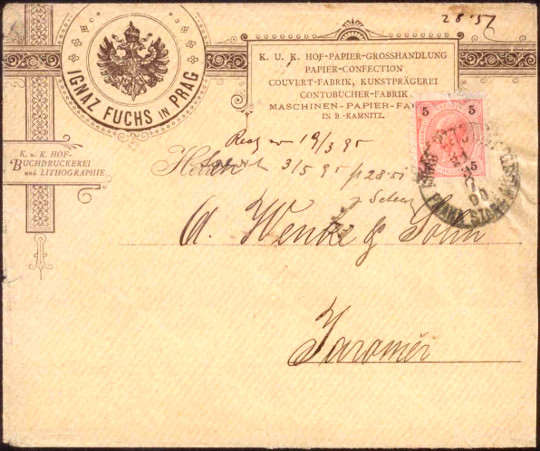 28.51
IGNAZ FUCHS IN PRAG
K. U. K. HOF-PAPIER-GROSSHANDLUNG
PAPIER-CONFECTION
COUVERT-FABRIK, KUNSTPRÄGEREI
CONTOBÜCHER-FABRIK
MASCHINEN-PAPIER-FA
IN B.-KAMNITZ.
5 5
K. u. K. HOF-
BUCHDRUCKEREI
und LITHOGRAPHIE
19/3 95
Herren
3/5 95 28.51
5
A. Wenke & Sohn
Jaroměř